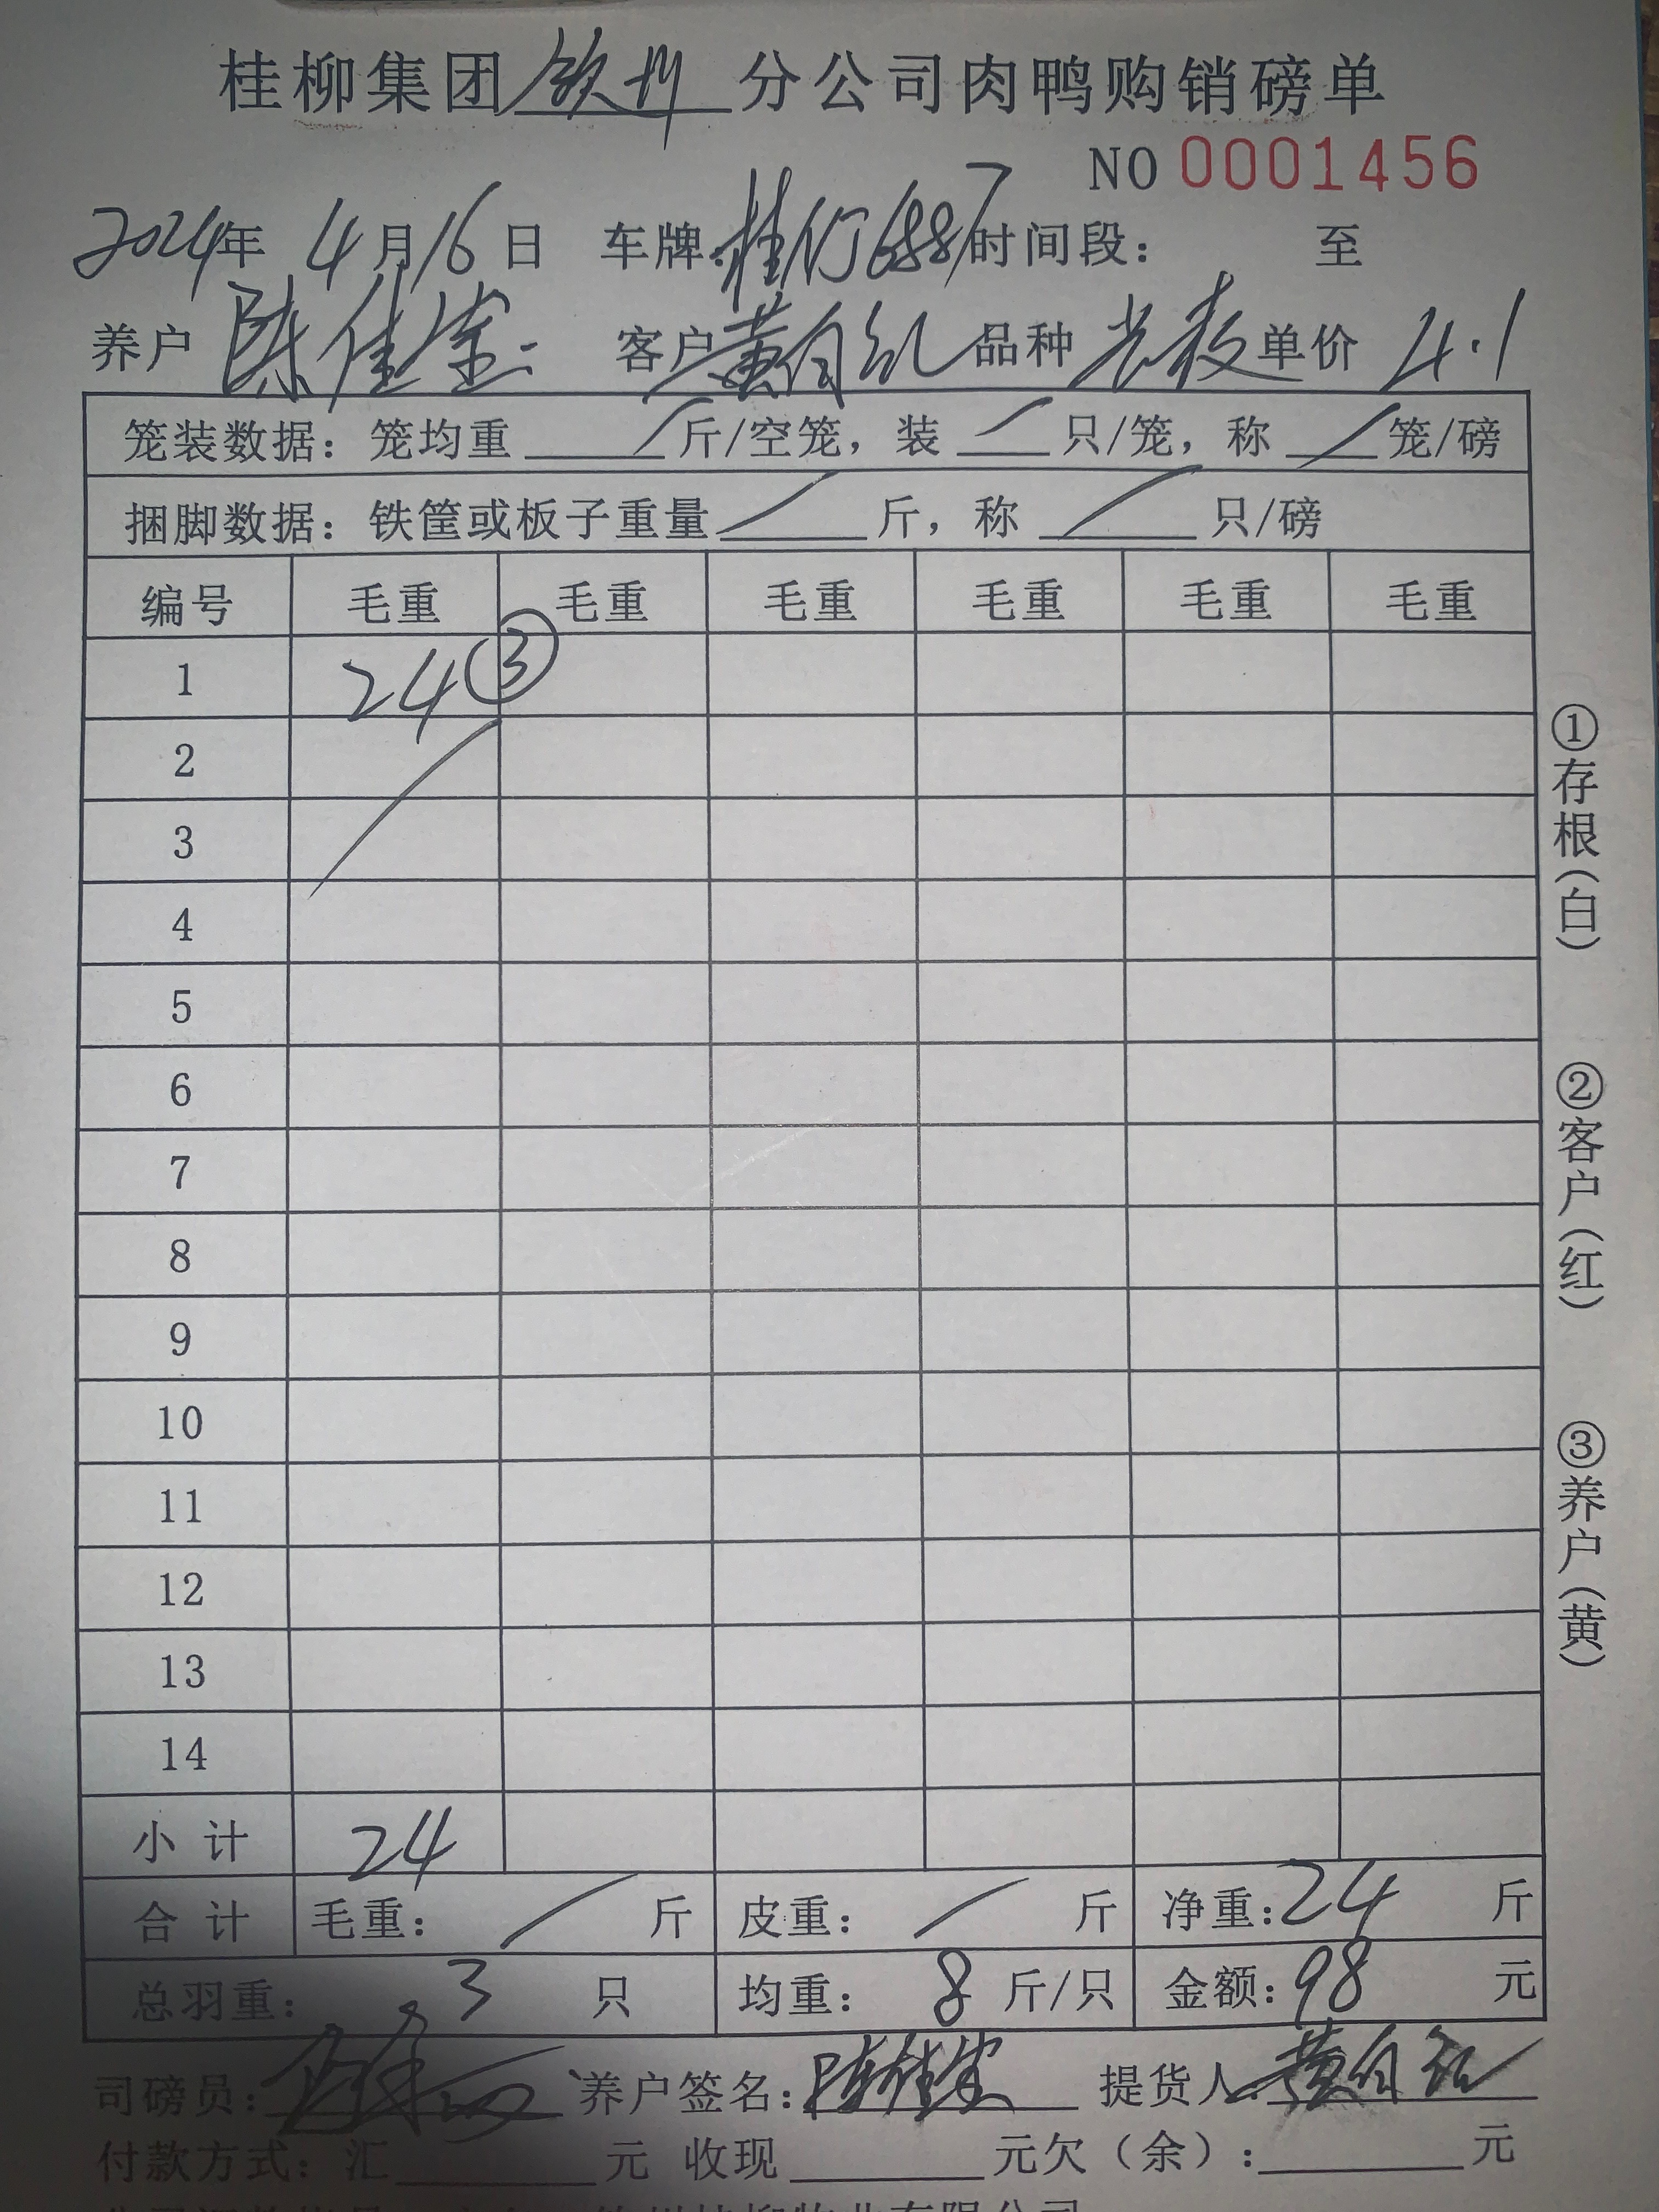 桂柳集团钦州分公司肉鸭购销磅单
NO 0001456
2024年 4月16日 车牌:桂 6887 时间段: 至
养户 陈佳 客户 黄自红 品种 单价 4.1
笼装数据:笼均重 / 斤/空笼,装 / 只/笼,称 / 笼/磅
捆脚数据:铁筐或板子重量 / 斤,称 / 只/磅
编号 毛重 毛重 毛重 毛重 毛重 毛重
1 24 ③
2
3
4
5
6
7
8
9
10
11
12
13
14
小计 24
合计 毛重: / 斤 皮重: / 斤 净重:24 斤
总羽重: 3 只 均重: 8 斤/只 金额:98 元
司磅员: 养户签名:陈佳 提货人:黄自红
付款方式:汇 元 收现 元欠(余): 元
①存根(白)
②客户(红)
③养户(黄)